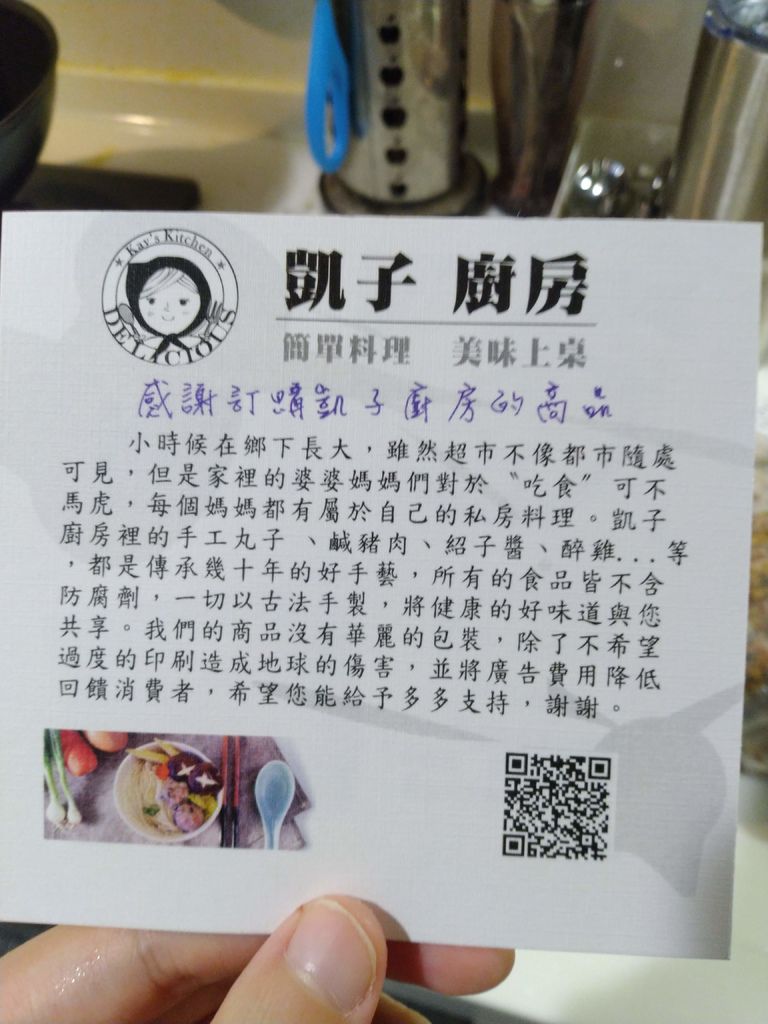 Kay's Kitchen
DELICIOUS
凱子 廚房
簡單料理 美味上桌
感謝訂購凱子廚房的商品
小時候在鄉下長大，雖然超市不像都市隨處
可見，但是家裡的婆婆媽媽們對於〝吃食〞可不
馬虎，每個媽媽都有屬於自己的私房料理。凱子
廚房裡的手工丸子、鹹豬肉、紹子醬、醉雞...等
，都是傳承幾十年的好手藝，所有的食品皆不含
防腐劑，一切以古法手製，將健康的好味道與您
共享。我們的商品沒有華麗的包裝，除了不希望
過度的印刷造成地球的傷害，並將廣告費用降低
回饋消費者，希望您能給予多多支持，謝謝。